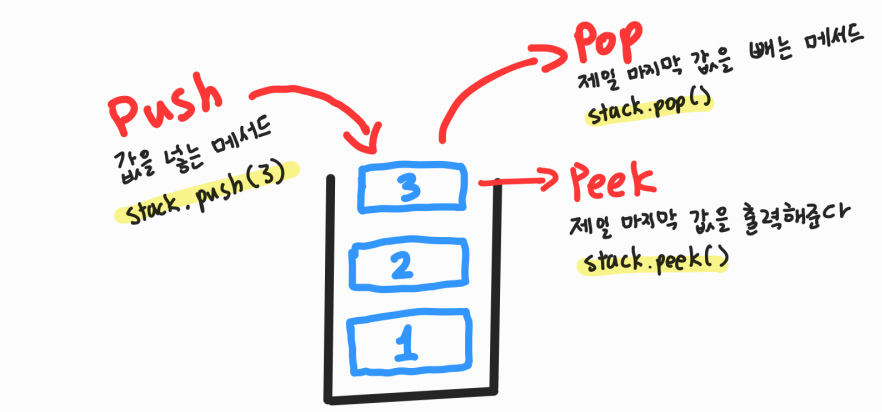 Push
값을 넣는 메서드
stack.push(3)
Pop
제일 마지막 값을 빼는 메서드
stack.pop()
Peek
제일 마지막 값을 출력해준다
stack.peek()
3
2
1